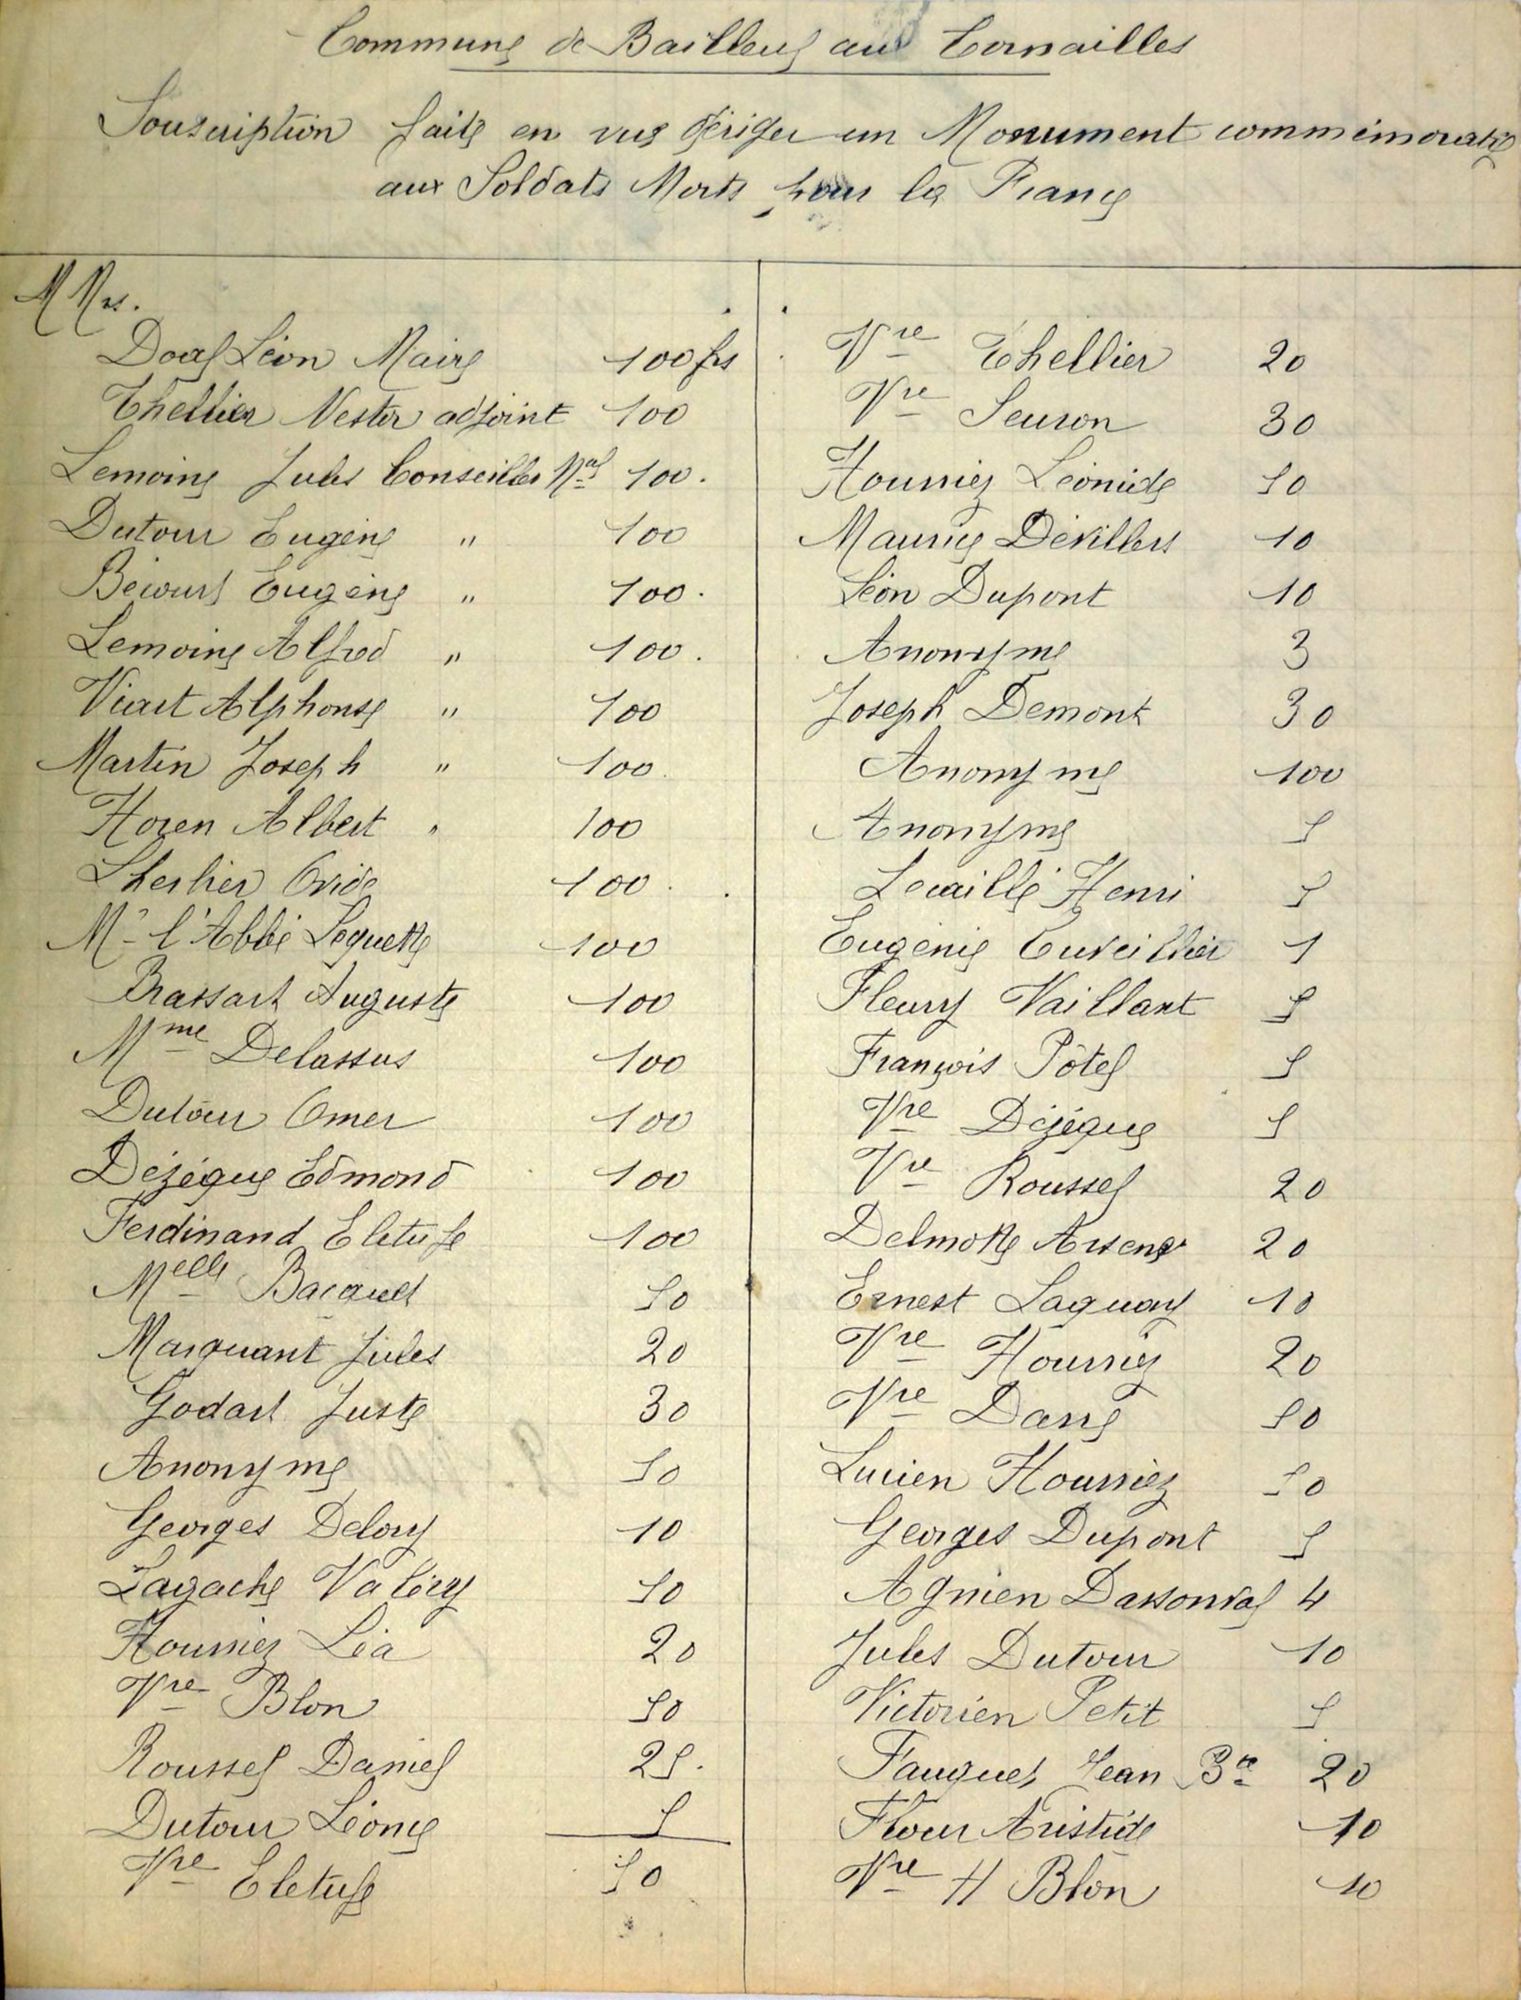 Commune de Bailleul aux Cornailles
Souscription faite en vue d'ériger un Monument commémoratif
aux Soldats Morts pour la France
MMrs.
Doal Léon Maire 100 frs
Thellier Nestor adjoint 100
Lemoine Jules Conseiller Mal 100.
Dutour Eugène " 100
Bécourt Eugène " 100.
Lemoine Alfred " 100.
Viart Alphonse " 100
Martin Joseph " 100.
Horen Albert " 100
Lherbier Ovide 100.
Mr l'Abbé Lequette 100
Brassart Auguste 100
Mme Delassus 100
Dutour Omer 100
Dézègue Edmond 100
Ferdinand Eletufe 100
Melle Bacquet 50
Marquant Jules 20
Godart Juste 30
Anonyme 50
Georges Delory 10
Lagache Valéry 50
Hourriez Léa 20
Vve Blon 50
Roussel Daniel 25.
Dutour Léonie 5
Vve Eletufe 50
Vve Thellier 20
Vve Seuron 30
Hourriez Léonide 50
Maurice Dévillers 10
Léon Dupont 10
Anonyme 3
Joseph Demont 30
Anonyme 100
Anonyme 5
Lecaille Henri 5
Eugénie Cuveillier 1
Fleury Vaillant 5
François Pôtel 5
Vve Dézègue 5
Vve Roussel 20
Delmotte Arsene 20
Ernest Laguay 10
Vve Hourriez 20
Vve Darré 50
Lucien Hourriez 50
Georges Dupont 5
Agnien Dassonval 4
Jules Dutour 10
Victorien Petit 5
Fauquet Jean Bte 20
Flour Aristide 10
Vve H Blon 10